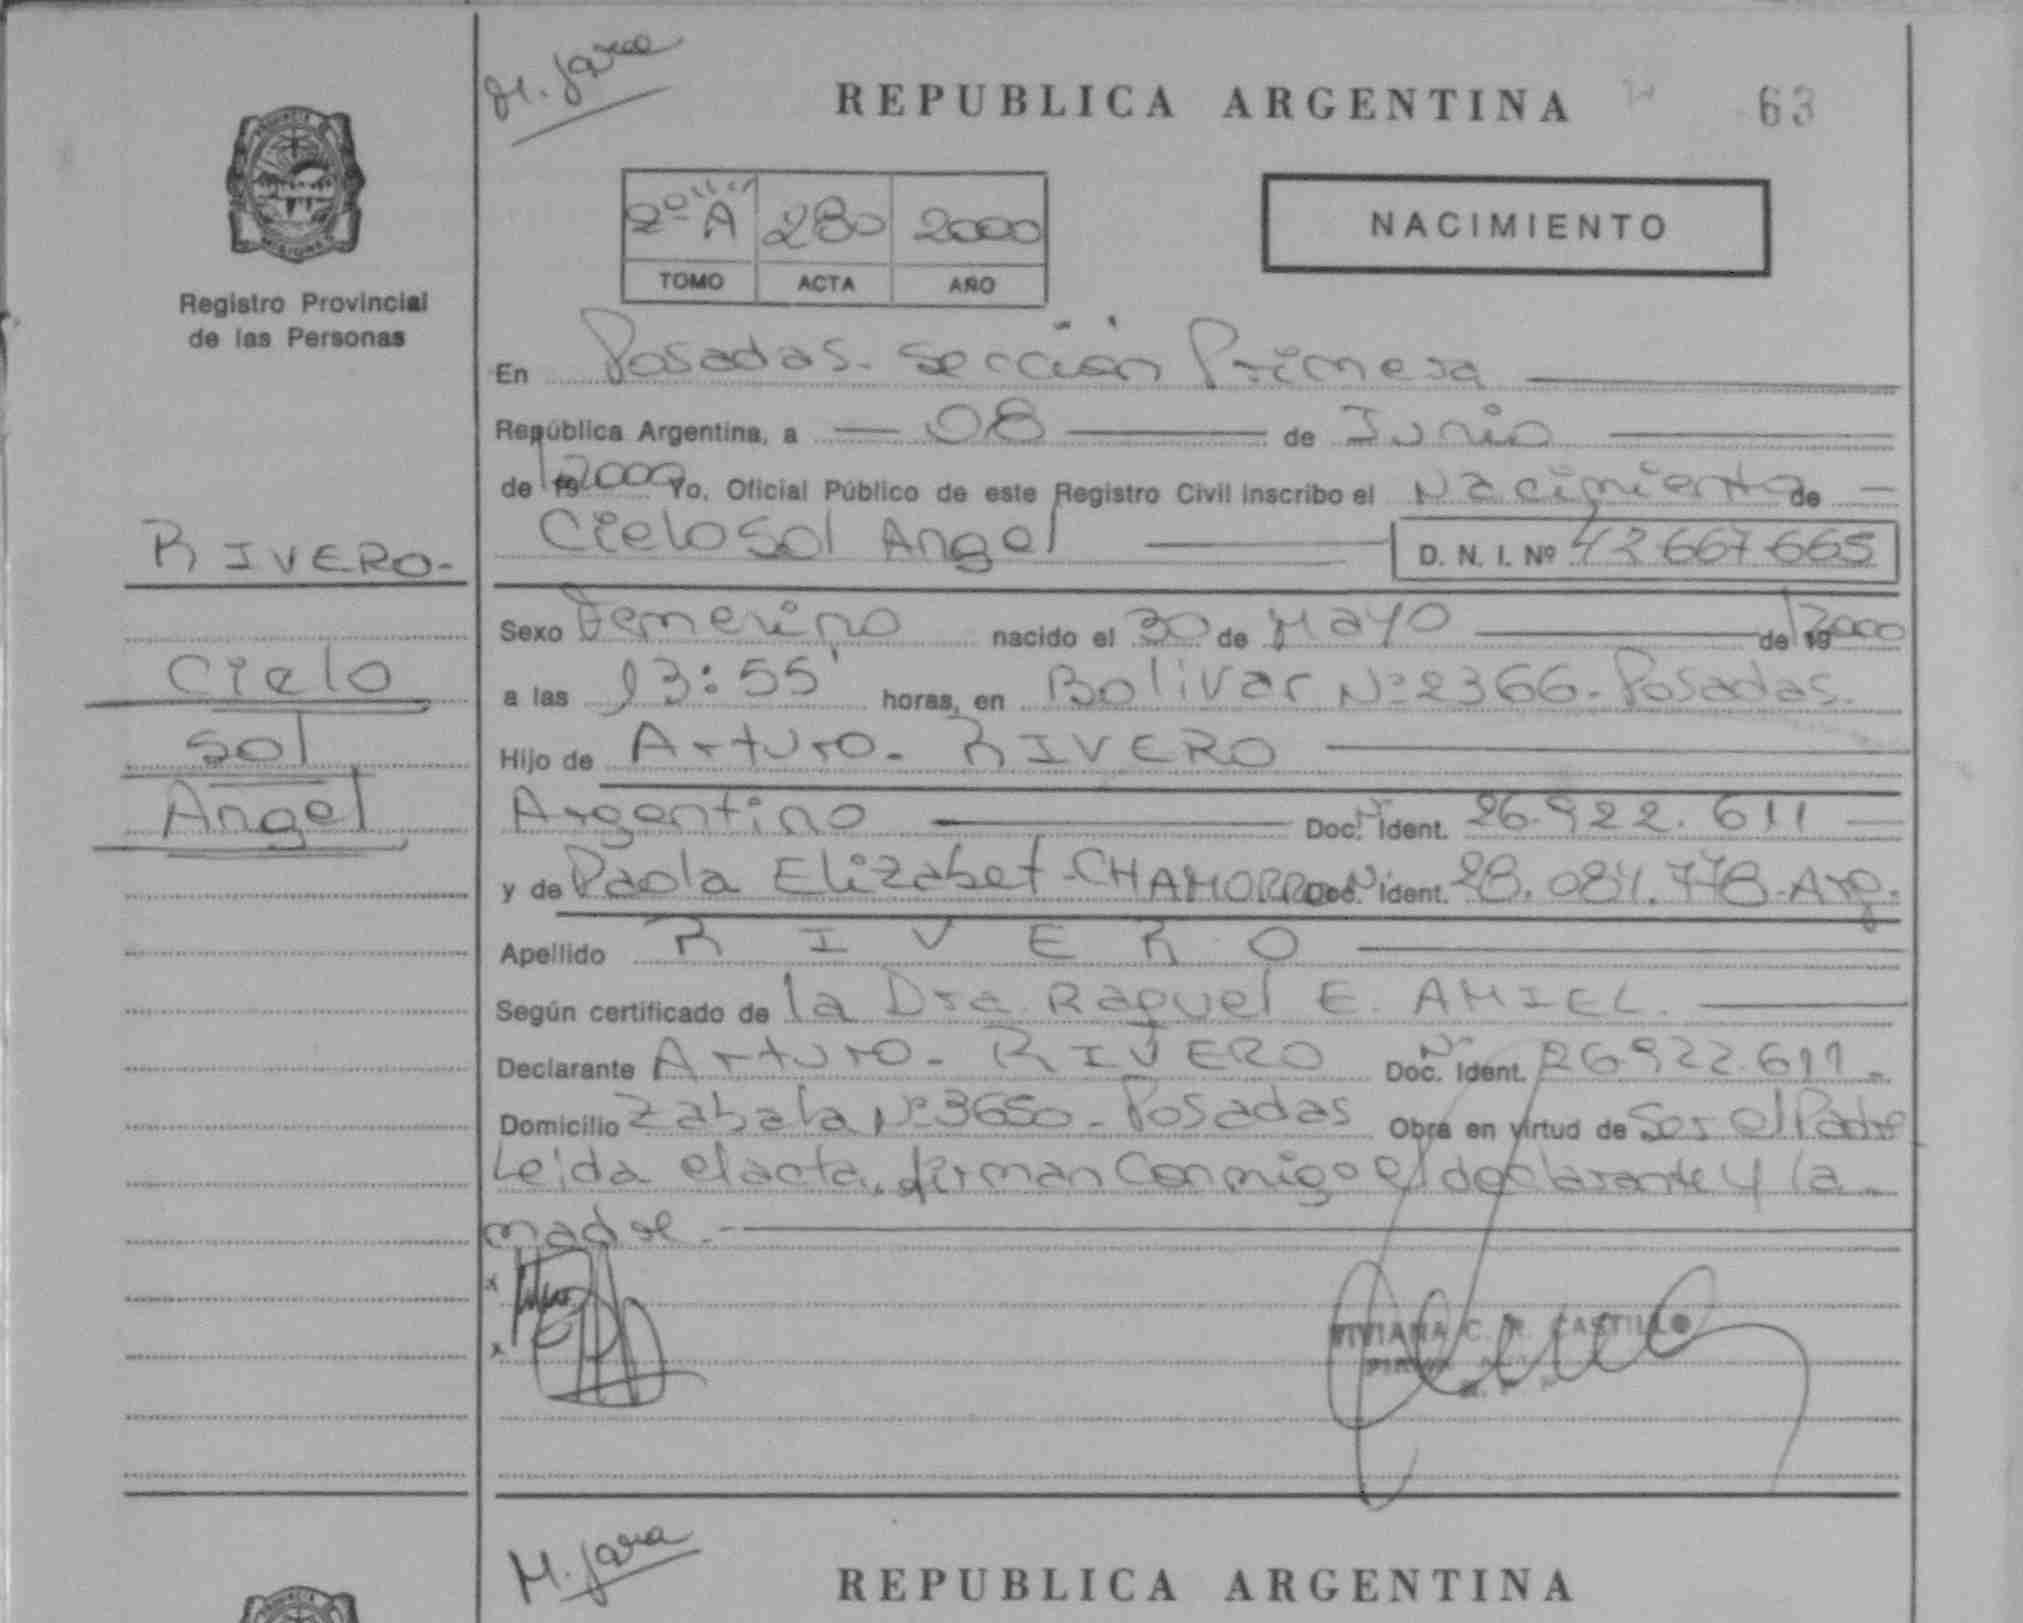 M. Jara
REPUBLICA ARGENTINA 63
2º "A" 280 2000
TOMO ACTA AÑO
NACIMIENTO
Registro Provincial
de las Personas
En Posadas. Sección Primera
República Argentina, a 08 de Junio
de 19 2000 Yo, Oficial Público de este Registro Civil inscribo el Nacimiento de
RIVERO.
Cielo Sol Angel D. N. I. Nº 42 667 665
Sexo Femenino nacido el 30 de Mayo de 19 2000
Cielo
a las 13:55' horas, en Bolivar Nº 2366. Posadas.
Sol
Hijo de Arturo. RIVERO
Angel
Argentino Doc. Nº Ident. 26.922.611
y de Paola Elizabet CHAMORRO Doc. Nº Ident. 28.084.778. Arg.
Apellido RIVERO
Según certificado de la Dra. Raquel E. AMIEL.
Declarante Arturo. RIVERO Doc. Nº Ident. 26.922.611.
Domicilio Zabala Nº 3650. Posadas Obra en virtud de Ser el Padre
Leida el acta, firman Conmigo el declarante y la
madre.
x
x
VIVIANA C. R. CASTILLO
M. Jara
REPUBLICA ARGENTINA